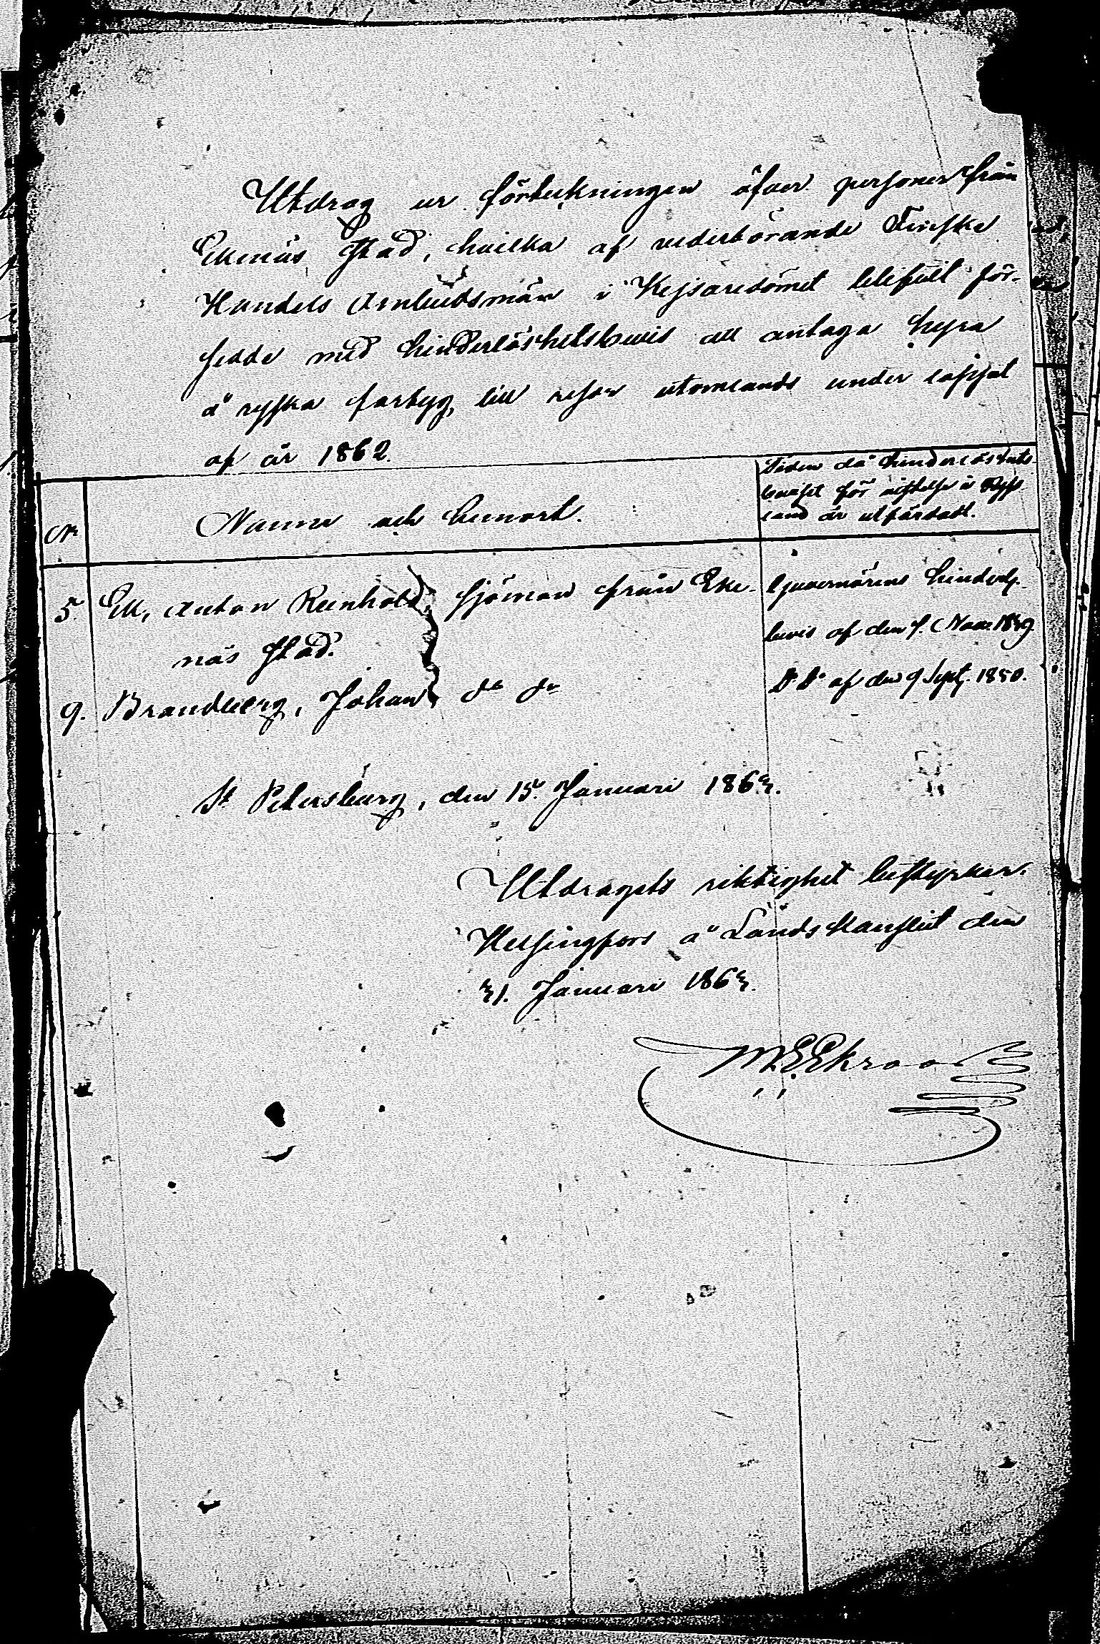 Utdrag ur förteckningen öfver personer från
Ekenäs Stad, hvilka af vederbörande Finska
Handels Ombudsmän i Kejsaredömet blifvit för-
sedde med hinderlöshetsbevis att antaga hyra
å ryska fartyg till resor utomlands under loppet
af år 1862.
Tiden då hinderlöshets
beviset för vistelse i Ryss
land är utfärdadt.
Nr
Namn och hemort.
5. Ek, Anton Reinhold, sjöman från Eke-
näs Stad.
Guvernörens hinderls.
bevis af den 7. Nov. 1859
9. Brandberg, Johan do do
Do Do af den 9 Sept. 1850.
St Petersburg, den 15 Januari 1863.
Utdragets riktighet bestyrker.
Helsingfors å Lands Kansliet den
31. Januari 1863.